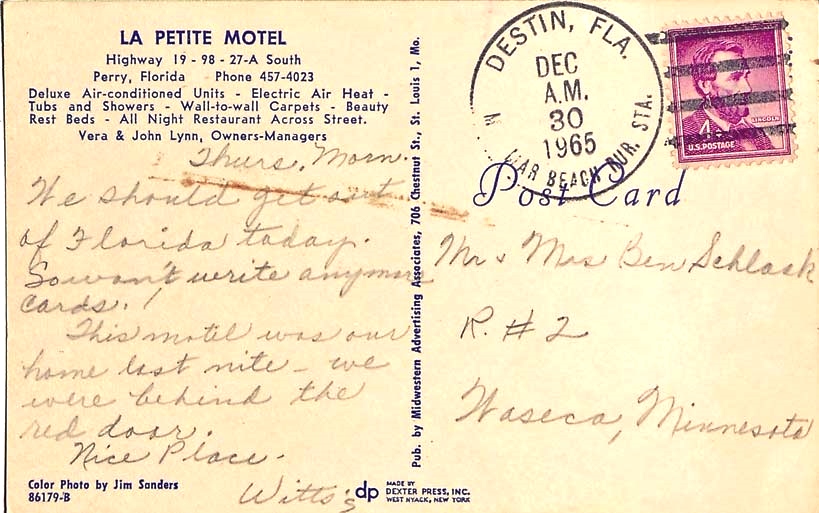 LA PETITE MOTEL
Highway 19 - 98 - 27-A South
Perry, Florida Phone 457-4023
Deluxe Air-conditioned Units - Electric Air Heat -
Tubs and Showers - Wall-to-wall Carpets - Beauty
Rest Beds - All Night Restaurant Across Street.
Vera & John Lynn, Owners-Managers
Thurs. Morn.
We should get out
of Florida today.
So won't write anymore
cards.!
This motel was our
home last nite - we
were behind the
red door.
Nice Place.
Witto's
Color Photo by Jim Sanders
86179-B
Pub. by Midwestern Advertising Associates, 706 Chestnut St., St. Louis 1, Mo.
dp
MADE BY
DEXTER PRESS, INC.
WEST NYACK, NEW YORK
DESTIN, FLA.
DEC
A.M.
30
1965
BEACH RUR. STA.
LINCOLN
4¢
U.S. POSTAGE
Post Card
Mr & Mrs Ben Schlaak
R. # 2
Waseca, Minnesota